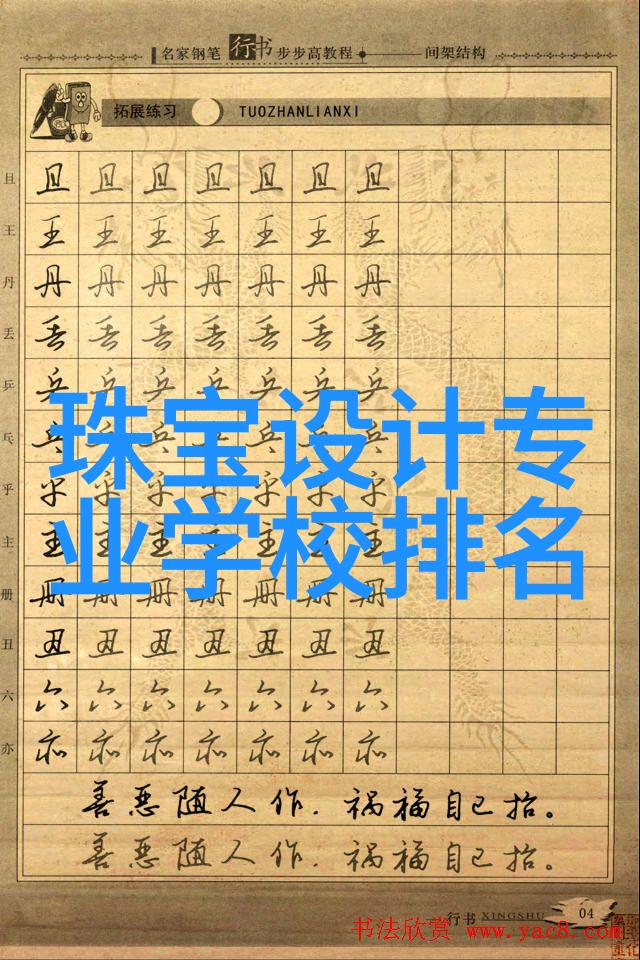 名家钢笔行书步步高教程 间架结构
拓展练习 TUOZHANLIANXI
且 且 且 且 且 且 且 且
王 王 王 王 王 王 王 王
丹 丹 丹 丹 丹 丹 丹 丹
丢 丢 丢 丢 丢 丢 丢 丢
乒 乒 乒 乒 乒 乒 乒 乒
珠宝设计专
乓 乓 乓 乓 乓 乓 乓 乓
乎 乎 乎 乎 乎 乎 乎 乎
业学校排名
主 主 主 主 主 主 主 主
册 册 册 册 册 册 册 册
丑 丑 丑 丑 丑 丑 丑 丑
六 六 六 六 六 六 六 六
亦 亦 亦 亦 亦 亦 亦 亦
善恶随人作，祸福自己招。
善恶随人作，祸福自己招。
行书 XINGSHU 04
书法欣赏 www.yac8.com